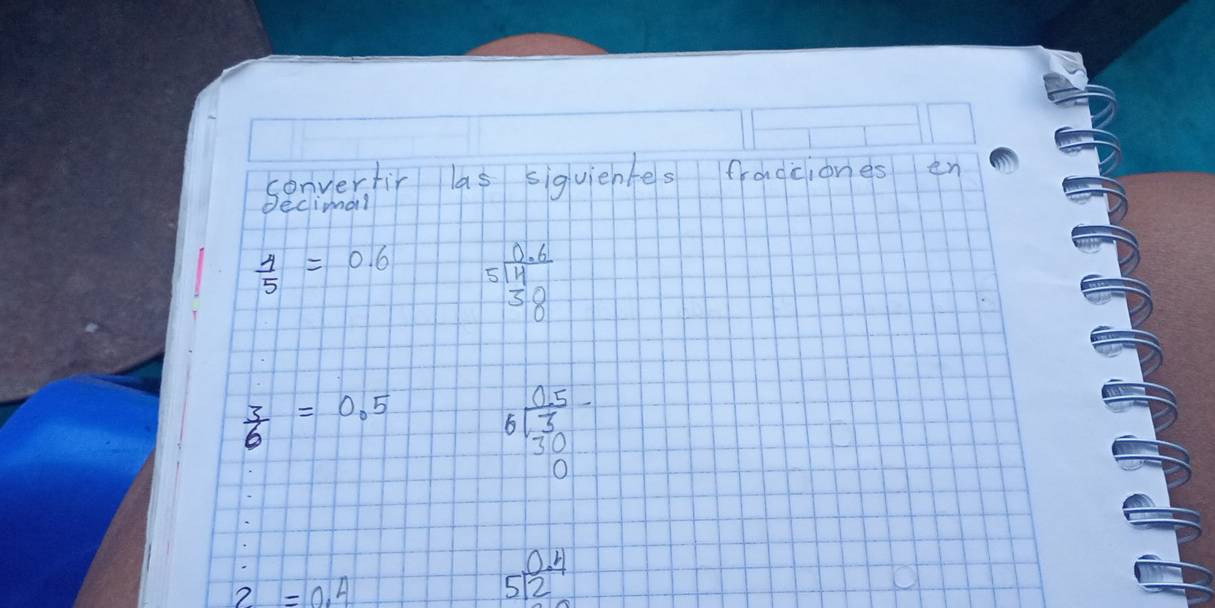 convertir las siguientes fracciones en
decimal
4/5 = 0.6
0.6
5 4
30
0
3/6 = 0.5
0.5
6 3
30
0
2 = 0.4
0.4
5 2